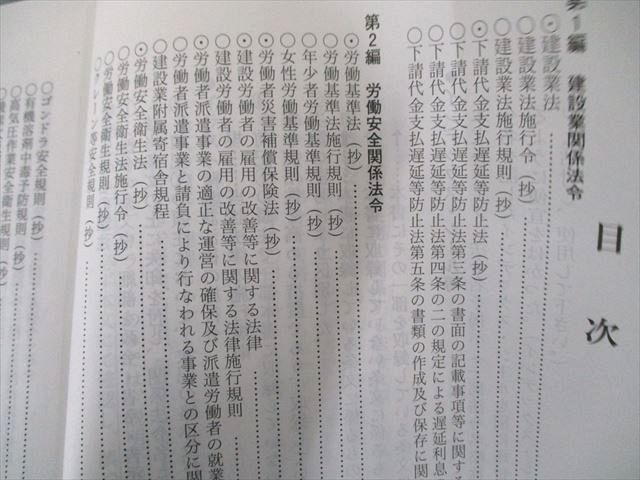 目次
第1編 建設業関係法令
◉建設業法
○建設業法施行令（抄）
○建設業法施行規則（抄）
◉下請代金支払遅延等防止法（抄）
○下請代金支払遅延等防止法第三条の書面の記載事項等に関する
○下請代金支払遅延等防止法第四条の二の規定による遅延利息
○下請代金支払遅延等防止法第五条の書類の作成及び保存に関
第2編 労働安全関係法令
◉労働基準法（抄）
○労働基準法施行規則（抄）
○年少者労働基準規則（抄）
○女性労働基準規則（抄）
◉労働者災害補償保険法（抄）
◉建設労働者の雇用の改善等に関する法律
○建設労働者の雇用の改善等に関する法律施行規則
◉労働者派遣事業の適正な運営の確保及び派遣労働者の就業
○労働者派遣事業と請負により行なわれる事業との区分に関
○建設業附属寄宿舎規程
◉労働安全衛生法（抄）
○労働安全衛生法施行令（抄）
○労働安全衛生規則（抄）
○クレーン等安全規則（抄）
○ゴンドラ安全規則（抄）
○有機溶剤中毒予防規則（抄）
○高気圧作業安全衛生規則（抄）